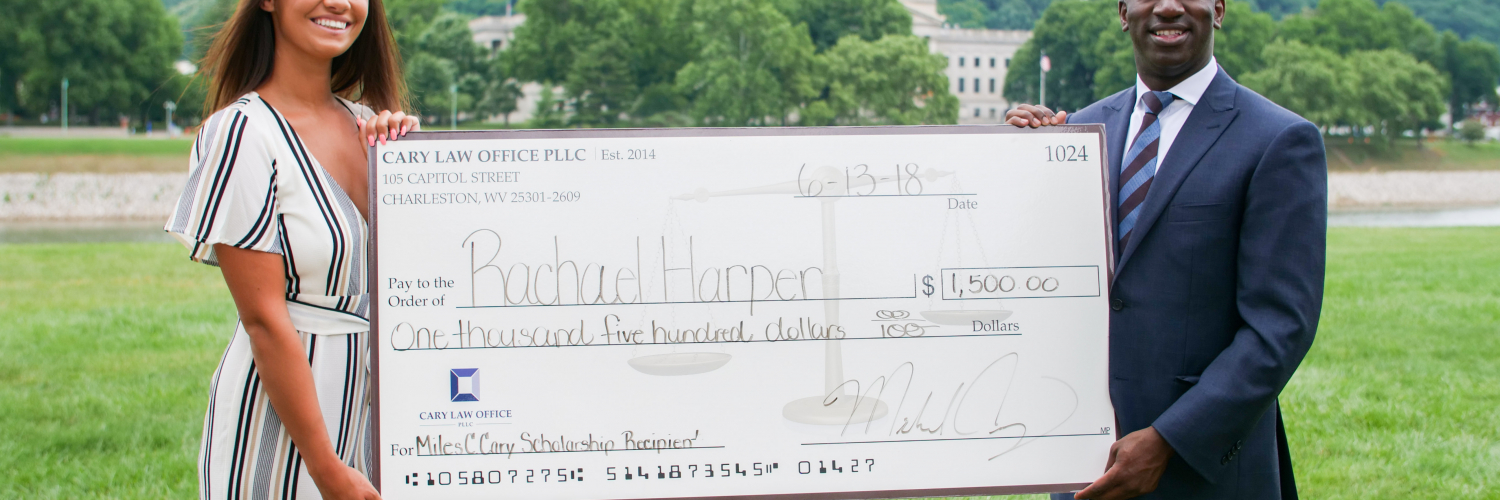 CARY LAW OFFICE PLLC | Est. 2014
1024
105 CAPITOL STREET
CHARLESTON, WV 25301-2609
6-13-18
Date
Pay to the
Order of Rachael Harper $ 1,500.00
One thousand five hundred dollars 00/100 Dollars
CARY LAW OFFICE
PLLC
For Miles C Cary Scholarship Recipient
MP
⑆105807275⑆ 5141873545⑈ 01427